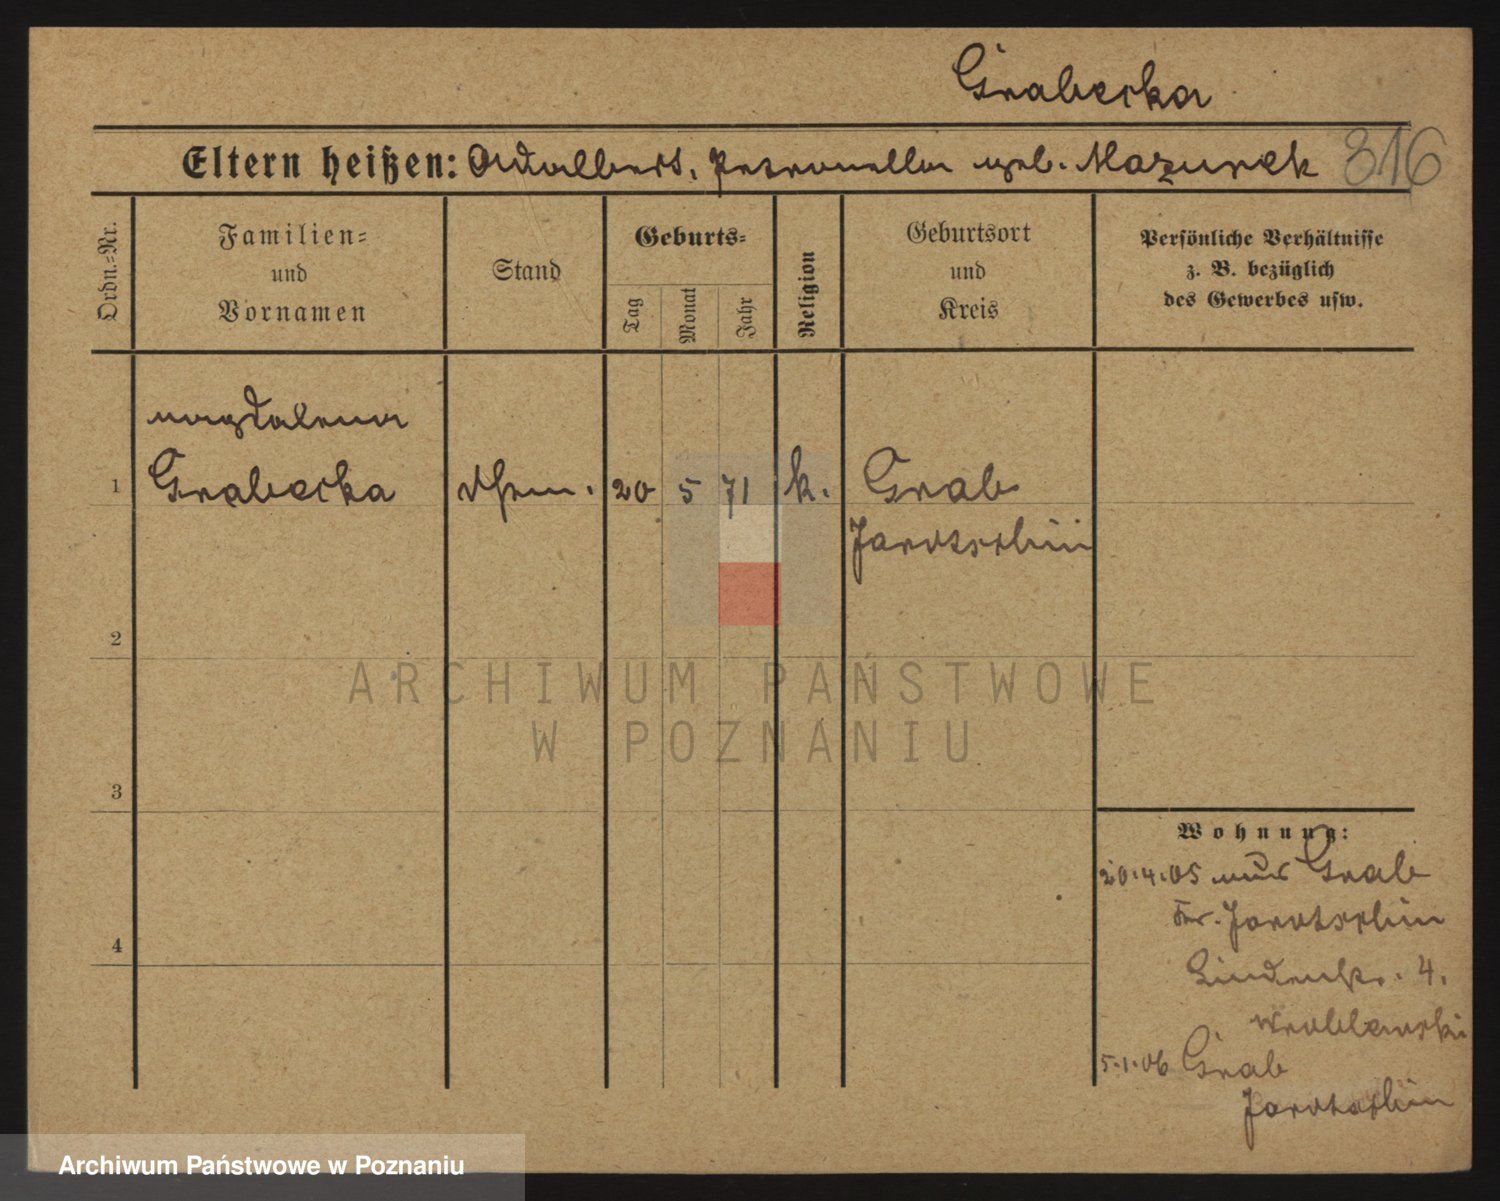 Grabecka
Eltern heißen: Adalbert, Petronella geb. Mazurek 316
Ordn.-Nr.
Familien- und Vornamen
Stand
Geburts-
Tag
Monat
Jahr
Religion
Geburtsort und Kreis
Persönliche Verhältnisse
z. B. bezüglich
des Gewerbes usw.
Magdalena
1 Grabecka 20 5 71 k. Grab
Jarotschin
2
ARCHIWUM PAŃSTWOWE
W POZNANIU
3
Wohnung:
20.4.05 aus Grab
Kr. Jarotschin
4
Lindenstr. 4.
Wroblewski
5.1.06 Grab
Jarotschin
Archiwum Państwowe w Poznaniu